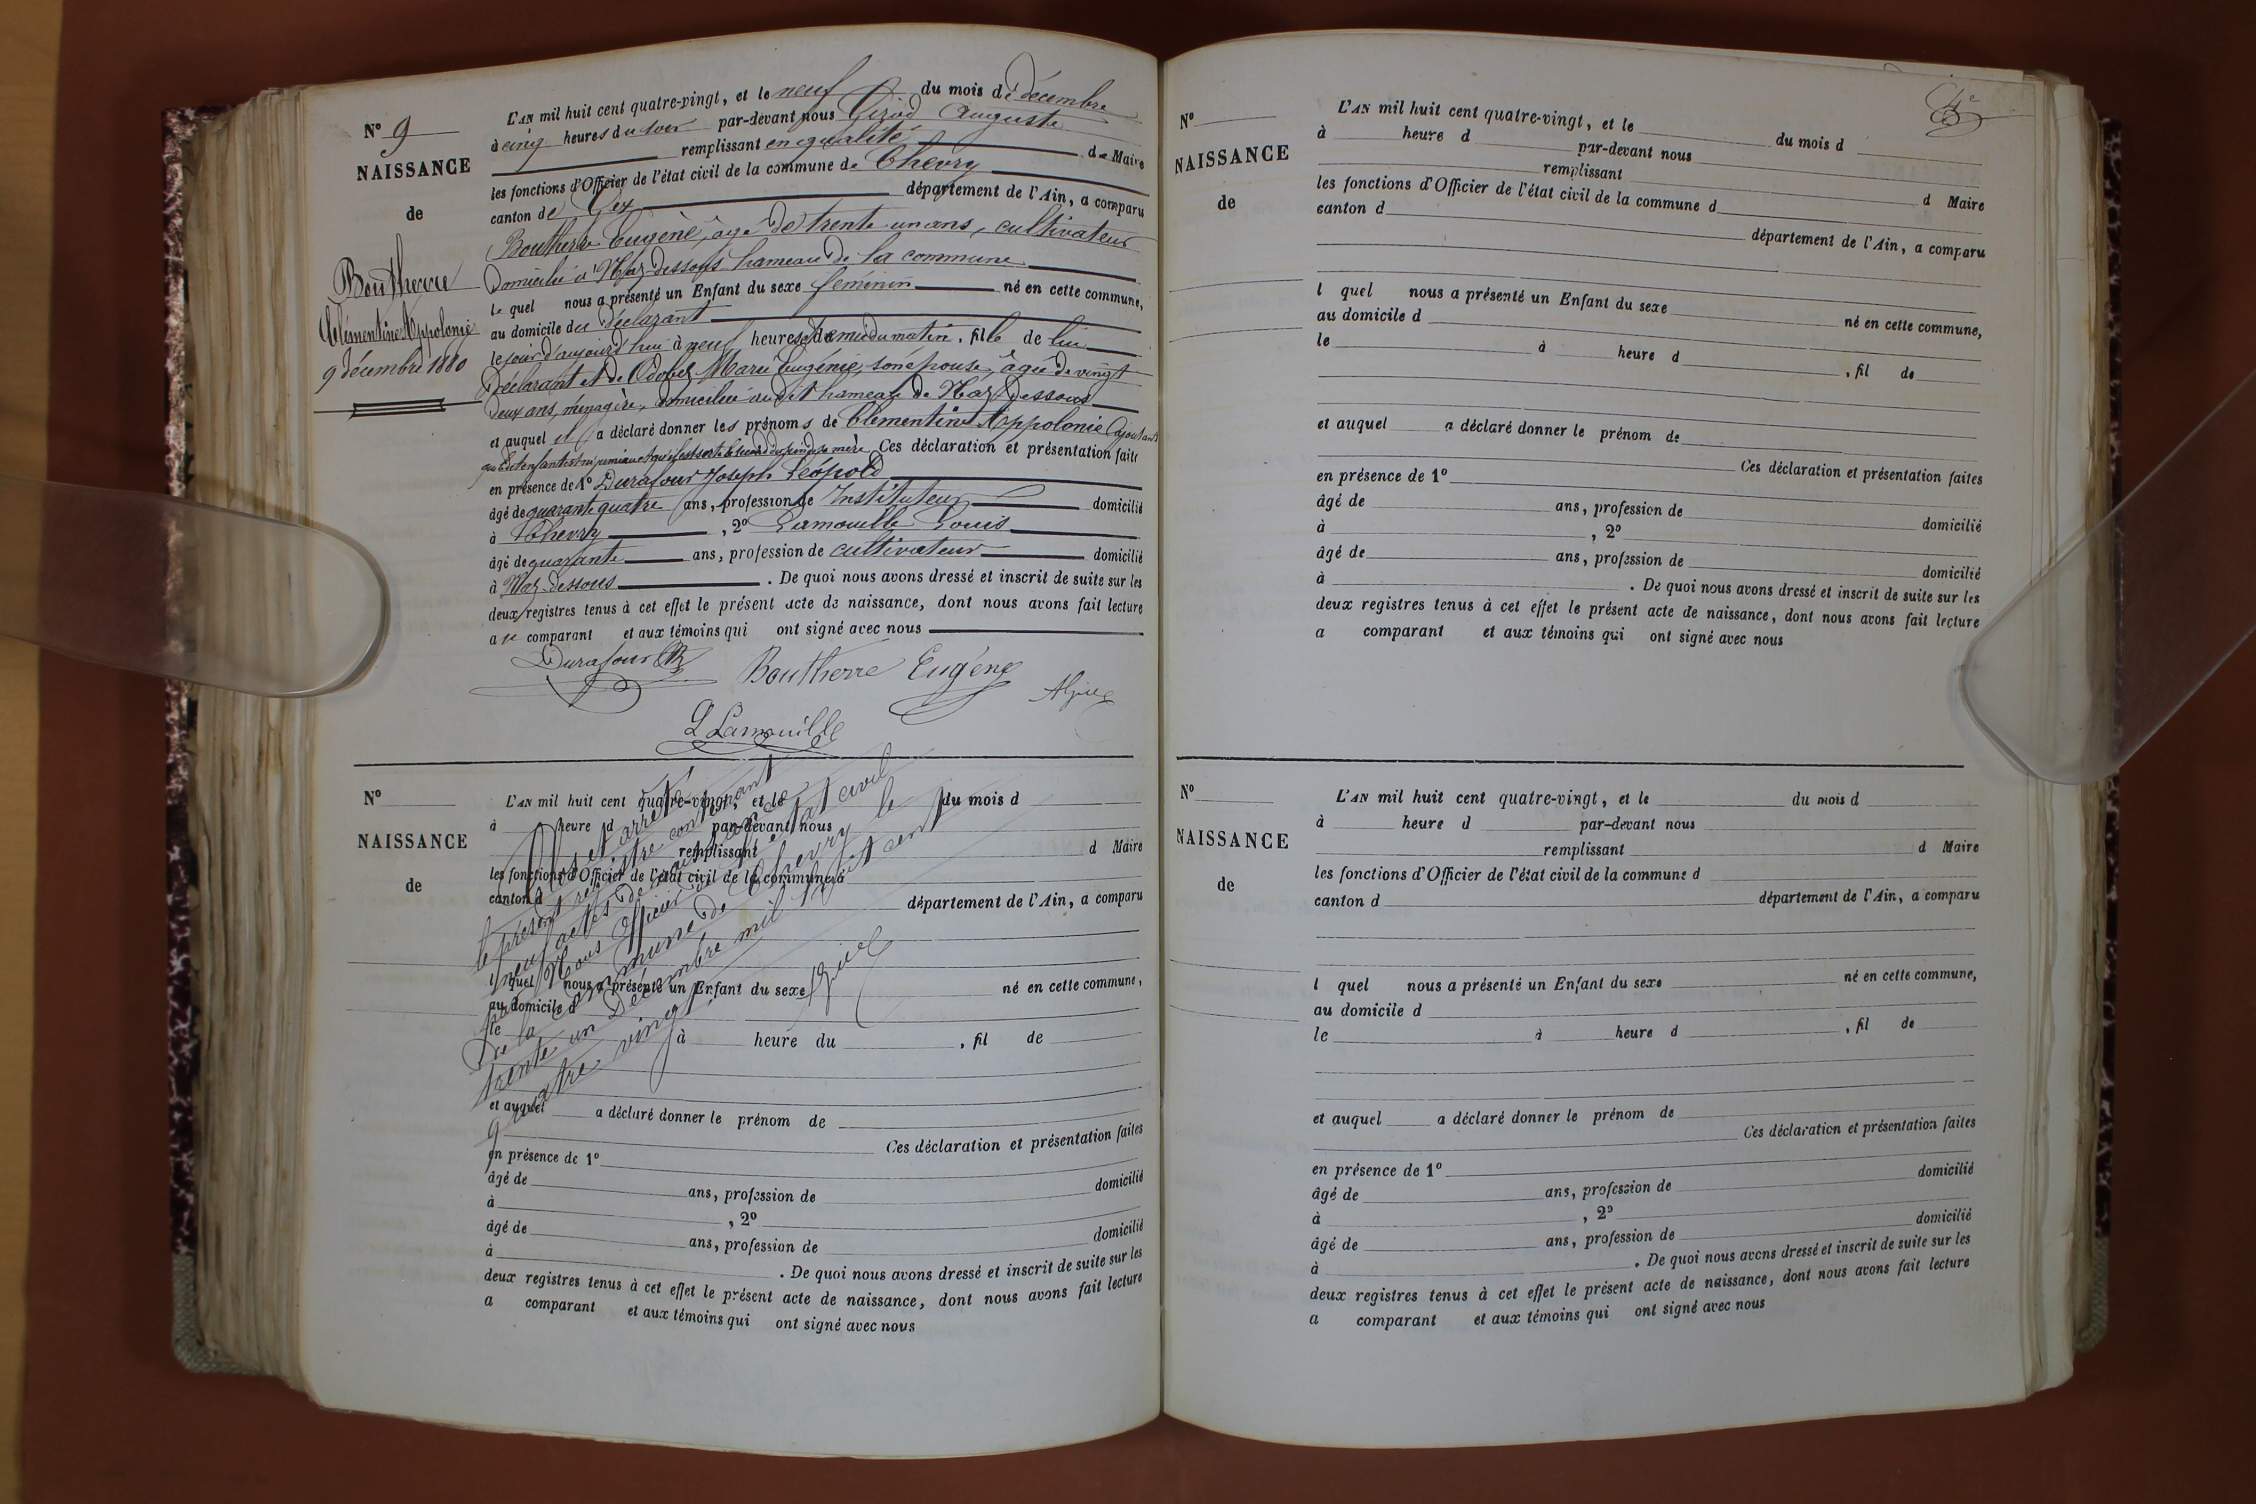 N° 9
NAISSANCE
de
Boutherre
Clémentine Appolonie
9 décembre 1880
L'AN mil huit cent quatre-vingt, et le neuf du mois de décembre
à cinq heures du soir par-devant nous Girod Auguste
remplissant en qualité de Maire
les fonctions d'Officier de l'état civil de la commune de Chevry
canton de Gex département de l'Ain, a comparu
Boutherre Eugène, âgé de trente un ans, cultivateur
domicilié à Naz-dessous hameau de la commune
le quel nous a présenté un Enfant du sexe féminin né en cette commune,
au domicile du déclarant
le jour d'aujourd'hui à neuf heures et demie du matin, fille de lui
déclarant et de Odobez Marie Eugénie, son épouse, âgée de vingt
deux ans, ménagère, domiciliée au dit hameau de Naz-dessous
et auquel il a déclaré donner les prénoms de Clémentine Appolonie ajoutant
que cet enfant est né jumeau et qu'il est sorti le second du sein de sa mère Ces déclaration et présentation faites
en présence de 1° Durafour Joseph Léopold
âgé de quarante quatre ans, profession de Instituteur domicilié
à Chevry, 2° Lamouille Louis
âgé de quarante ans, profession de cultivateur domicilié
à Naz-dessous. De quoi nous avons dressé et inscrit de suite sur les
deux registres tenus à cet effet le présent acte de naissance, dont nous avons fait lecture
au comparant et aux témoins qui ont signé avec nous
Durafour
Boutherre Eugène
L Lamouille
N°
NAISSANCE
de
L'AN mil huit cent quatre-vingt, et le du mois d
à heure d par-devant nous
remplissant d Maire
les fonctions d'Officier de l'état civil de la commune d
canton d département de l'Ain, a comparu
l quel nous a présenté un Enfant du sexe né en cette commune,
au domicile d
le à heure du, fil de
et auquel a déclaré donner le prénom de
Ces déclaration et présentation faites
en présence de 1°
âgé de ans, profession de domicilié
à, 2°
âgé de ans, profession de domicilié
à. De quoi nous avons dressé et inscrit de suite sur les
deux registres tenus à cet effet le présent acte de naissance, dont nous avons fait lecture
a comparant et aux témoins qui ont signé avec nous
Clos et arrêté
le présent registre contenant
neuf actes de naissance
par Nous Officier de l'état civil
de la commune de Chevry le
trente un Décembre mil huit cent
quatre vingt.
N°
NAISSANCE
de
L'AN mil huit cent quatre-vingt, et le du mois d
à heure d par-devant nous
remplissant d Maire
les fonctions d'Officier de l'état civil de la commune d
canton d département de l'Ain, a comparu
l quel nous a présenté un Enfant du sexe né en cette commune,
au domicile d
le à heure d, fil de
et auquel a déclaré donner le prénom de
Ces déclaration et présentation faites
en présence de 1°
âgé de ans, profession de domicilié
à, 2°
âgé de ans, profession de domicilié
à. De quoi nous avons dressé et inscrit de suite sur les
deux registres tenus à cet effet le présent acte de naissance, dont nous avons fait lecture
a comparant et aux témoins qui ont signé avec nous
N°
NAISSANCE
de
L'AN mil huit cent quatre-vingt, et le du mois d
à heure d par-devant nous
remplissant d Maire
les fonctions d'Officier de l'état civil de la commune d
canton d département de l'Ain, a comparu
l quel nous a présenté un Enfant du sexe né en cette commune,
au domicile d
le à heure d, fil de
et auquel a déclaré donner le prénom de
Ces déclaration et présentation faites
en présence de 1°
âgé de ans, profession de domicilié
à, 2°
âgé de ans, profession de domicilié
à. De quoi nous avons dressé et inscrit de suite sur les
deux registres tenus à cet effet le présent acte de naissance, dont nous avons fait lecture
a comparant et aux témoins qui ont signé avec nous